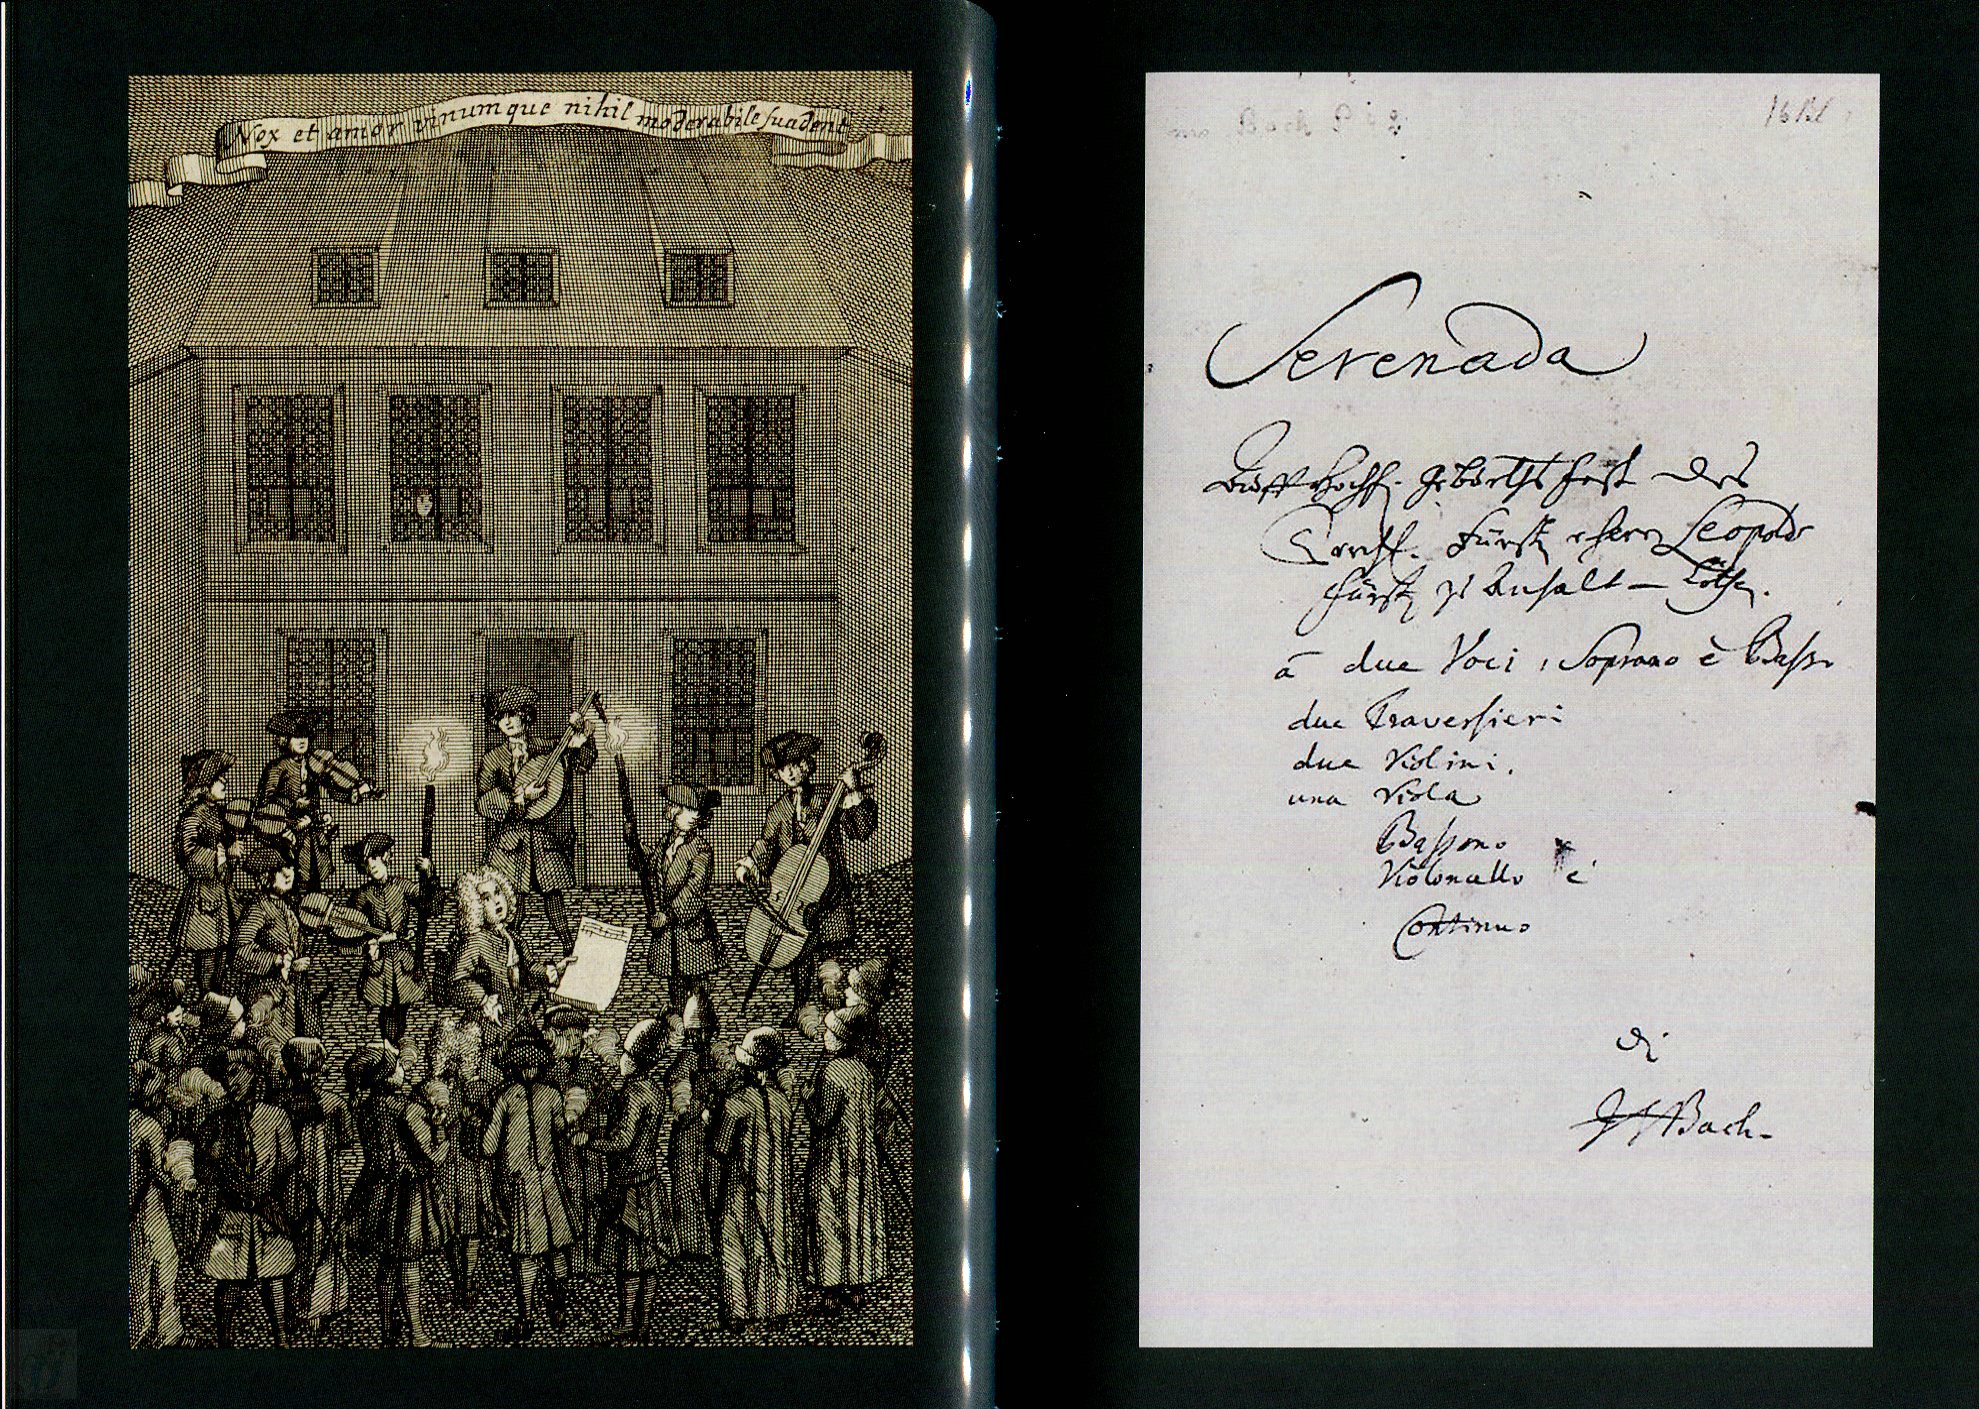 Nox et amor vinumque nihil moderabile suadent
16 Bl
Serenada
Hochf. Geburths Feste des
Fürsten Herrn Leopolds
Fürsten zu Anhalt – Cöthen.
à due Voci, Soprano è Basso
due Traversieri
due Violini.
una Viola
Bassono
Violoncello è
Continuo
di
JSBach.